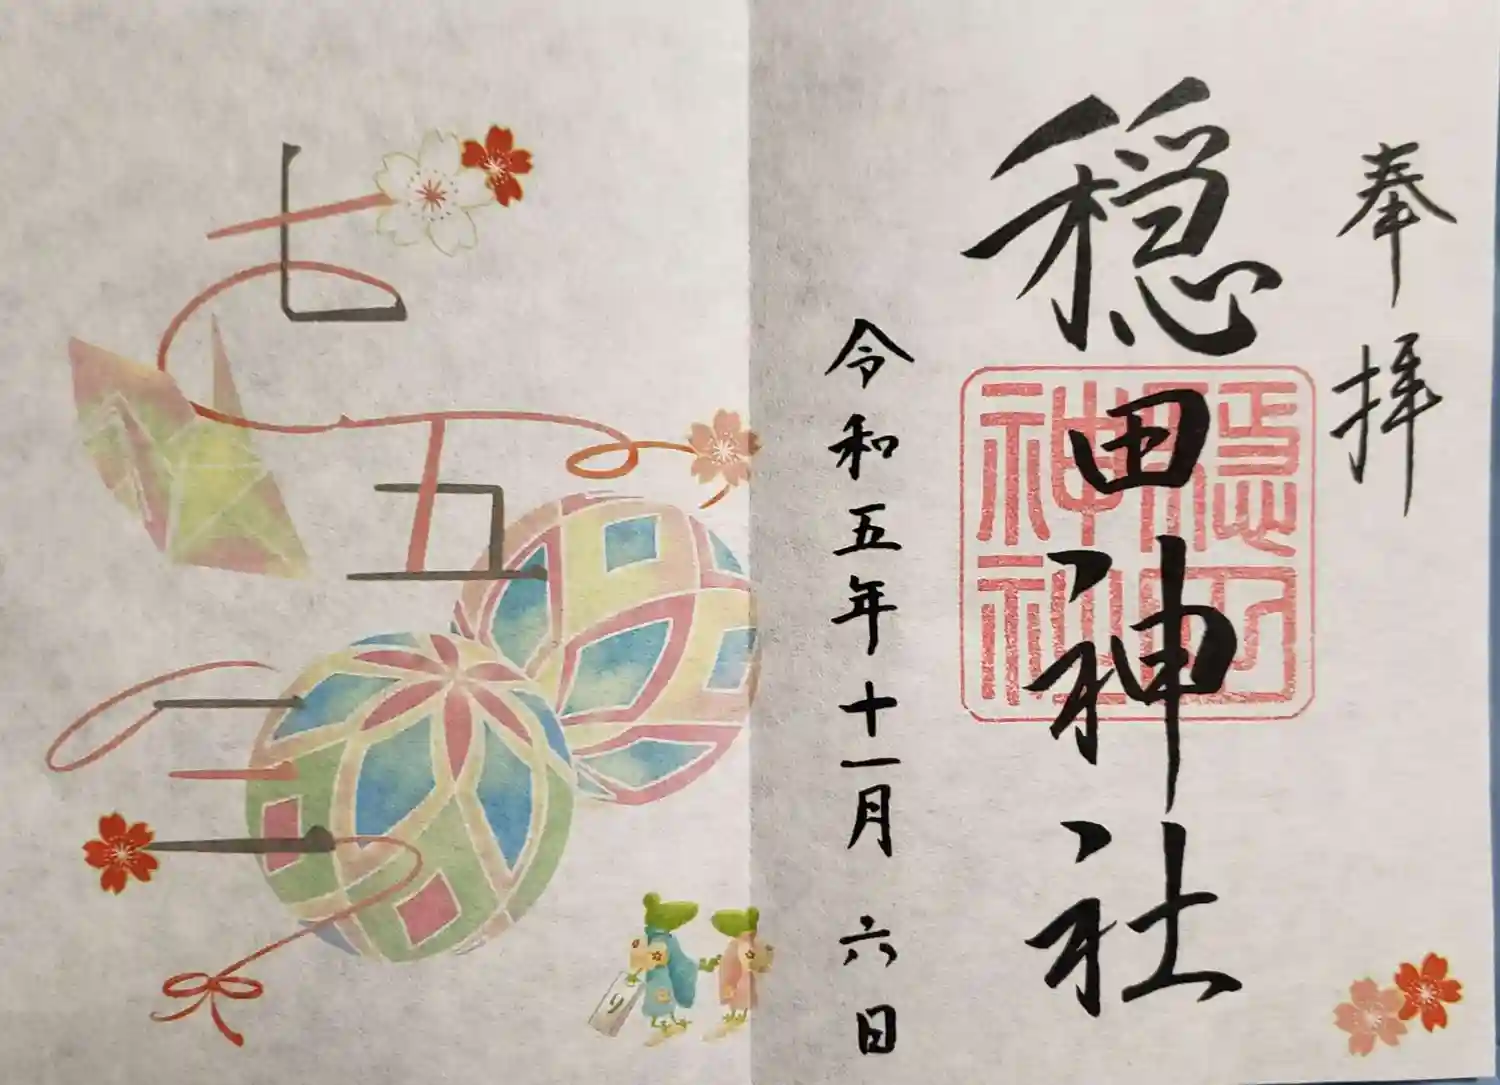 奉拝
穏田神社
穏田
神社
令和五年十一月六日
七五三
り